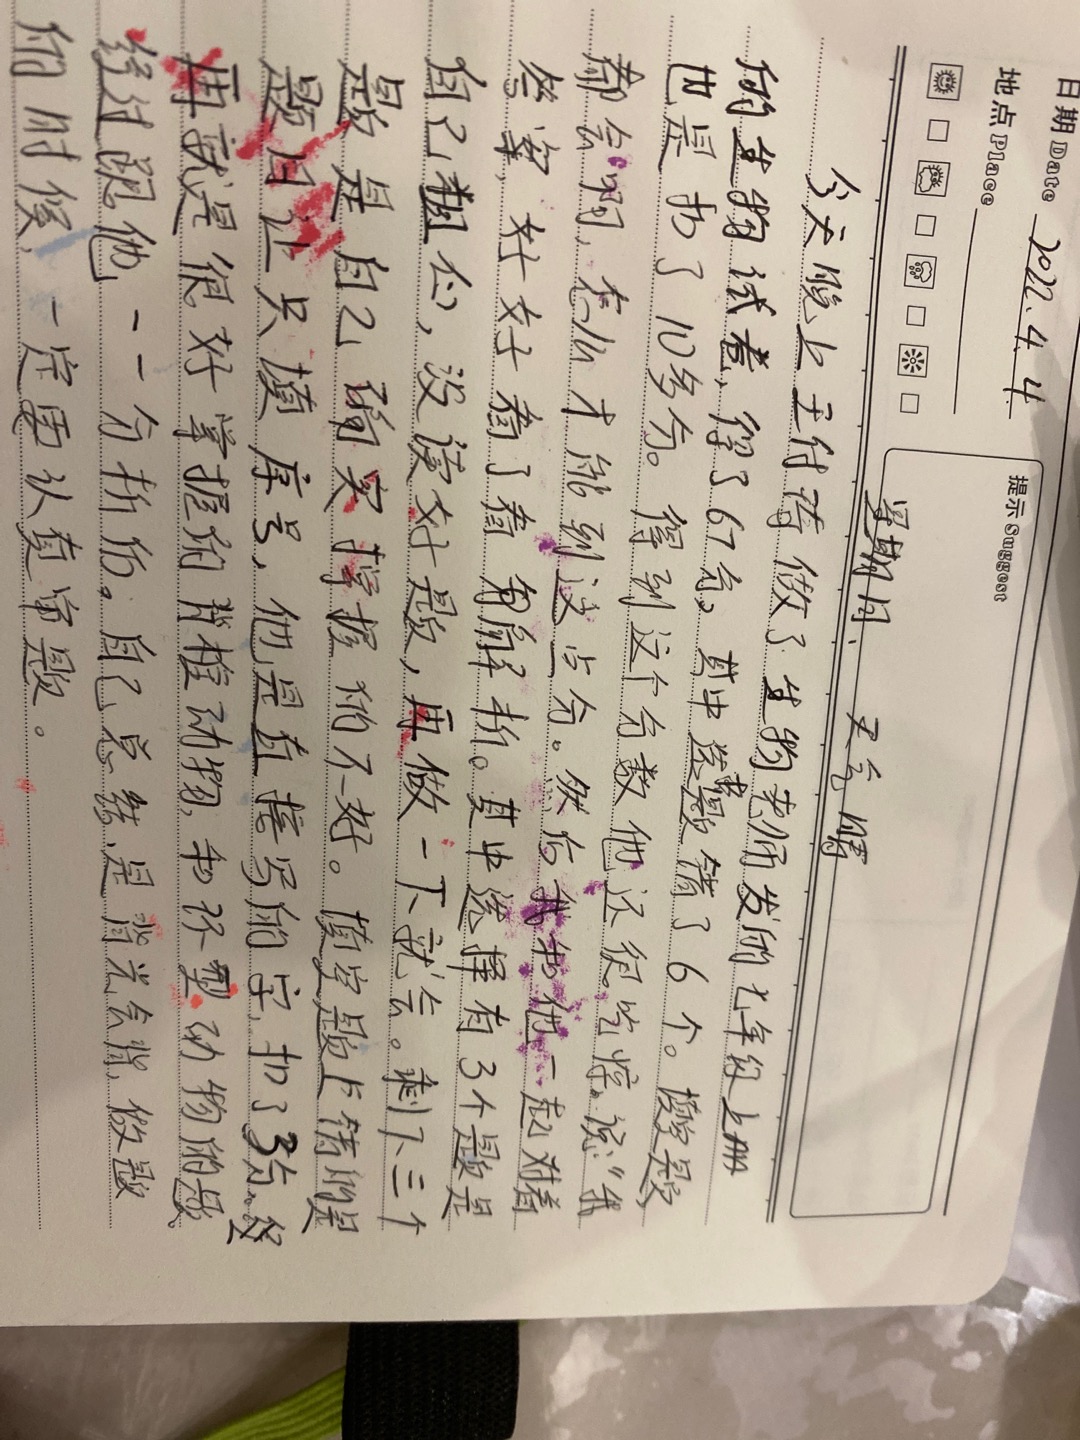 日期 Date 2022.4.4
地点 Place
提示 Suggest
星期日、 天气 晴
今天晚上王付涛做了生物老师发的七年级上册
的生物试卷，得了67分。其中选择题错了6个。填空题
也是扣了10多分。得到这个分数他还很吃惊。说：“我
都会啊，怎么才能到这点分。然后我和他一起对着
答案，好好看了看有解析。其中选择有3个题是
自己粗心，没读好题，再做一下就会。剩下三个
题是自己确实掌握的不好。填空题上错的是
题目让只填序号，他是直接写的字，扣了3分。
再就是很好掌握的脊椎动物，和环型动物的题。
经过跟他一一分析后。自己总结是背光会背，做题
的时候，一定要认真审题。